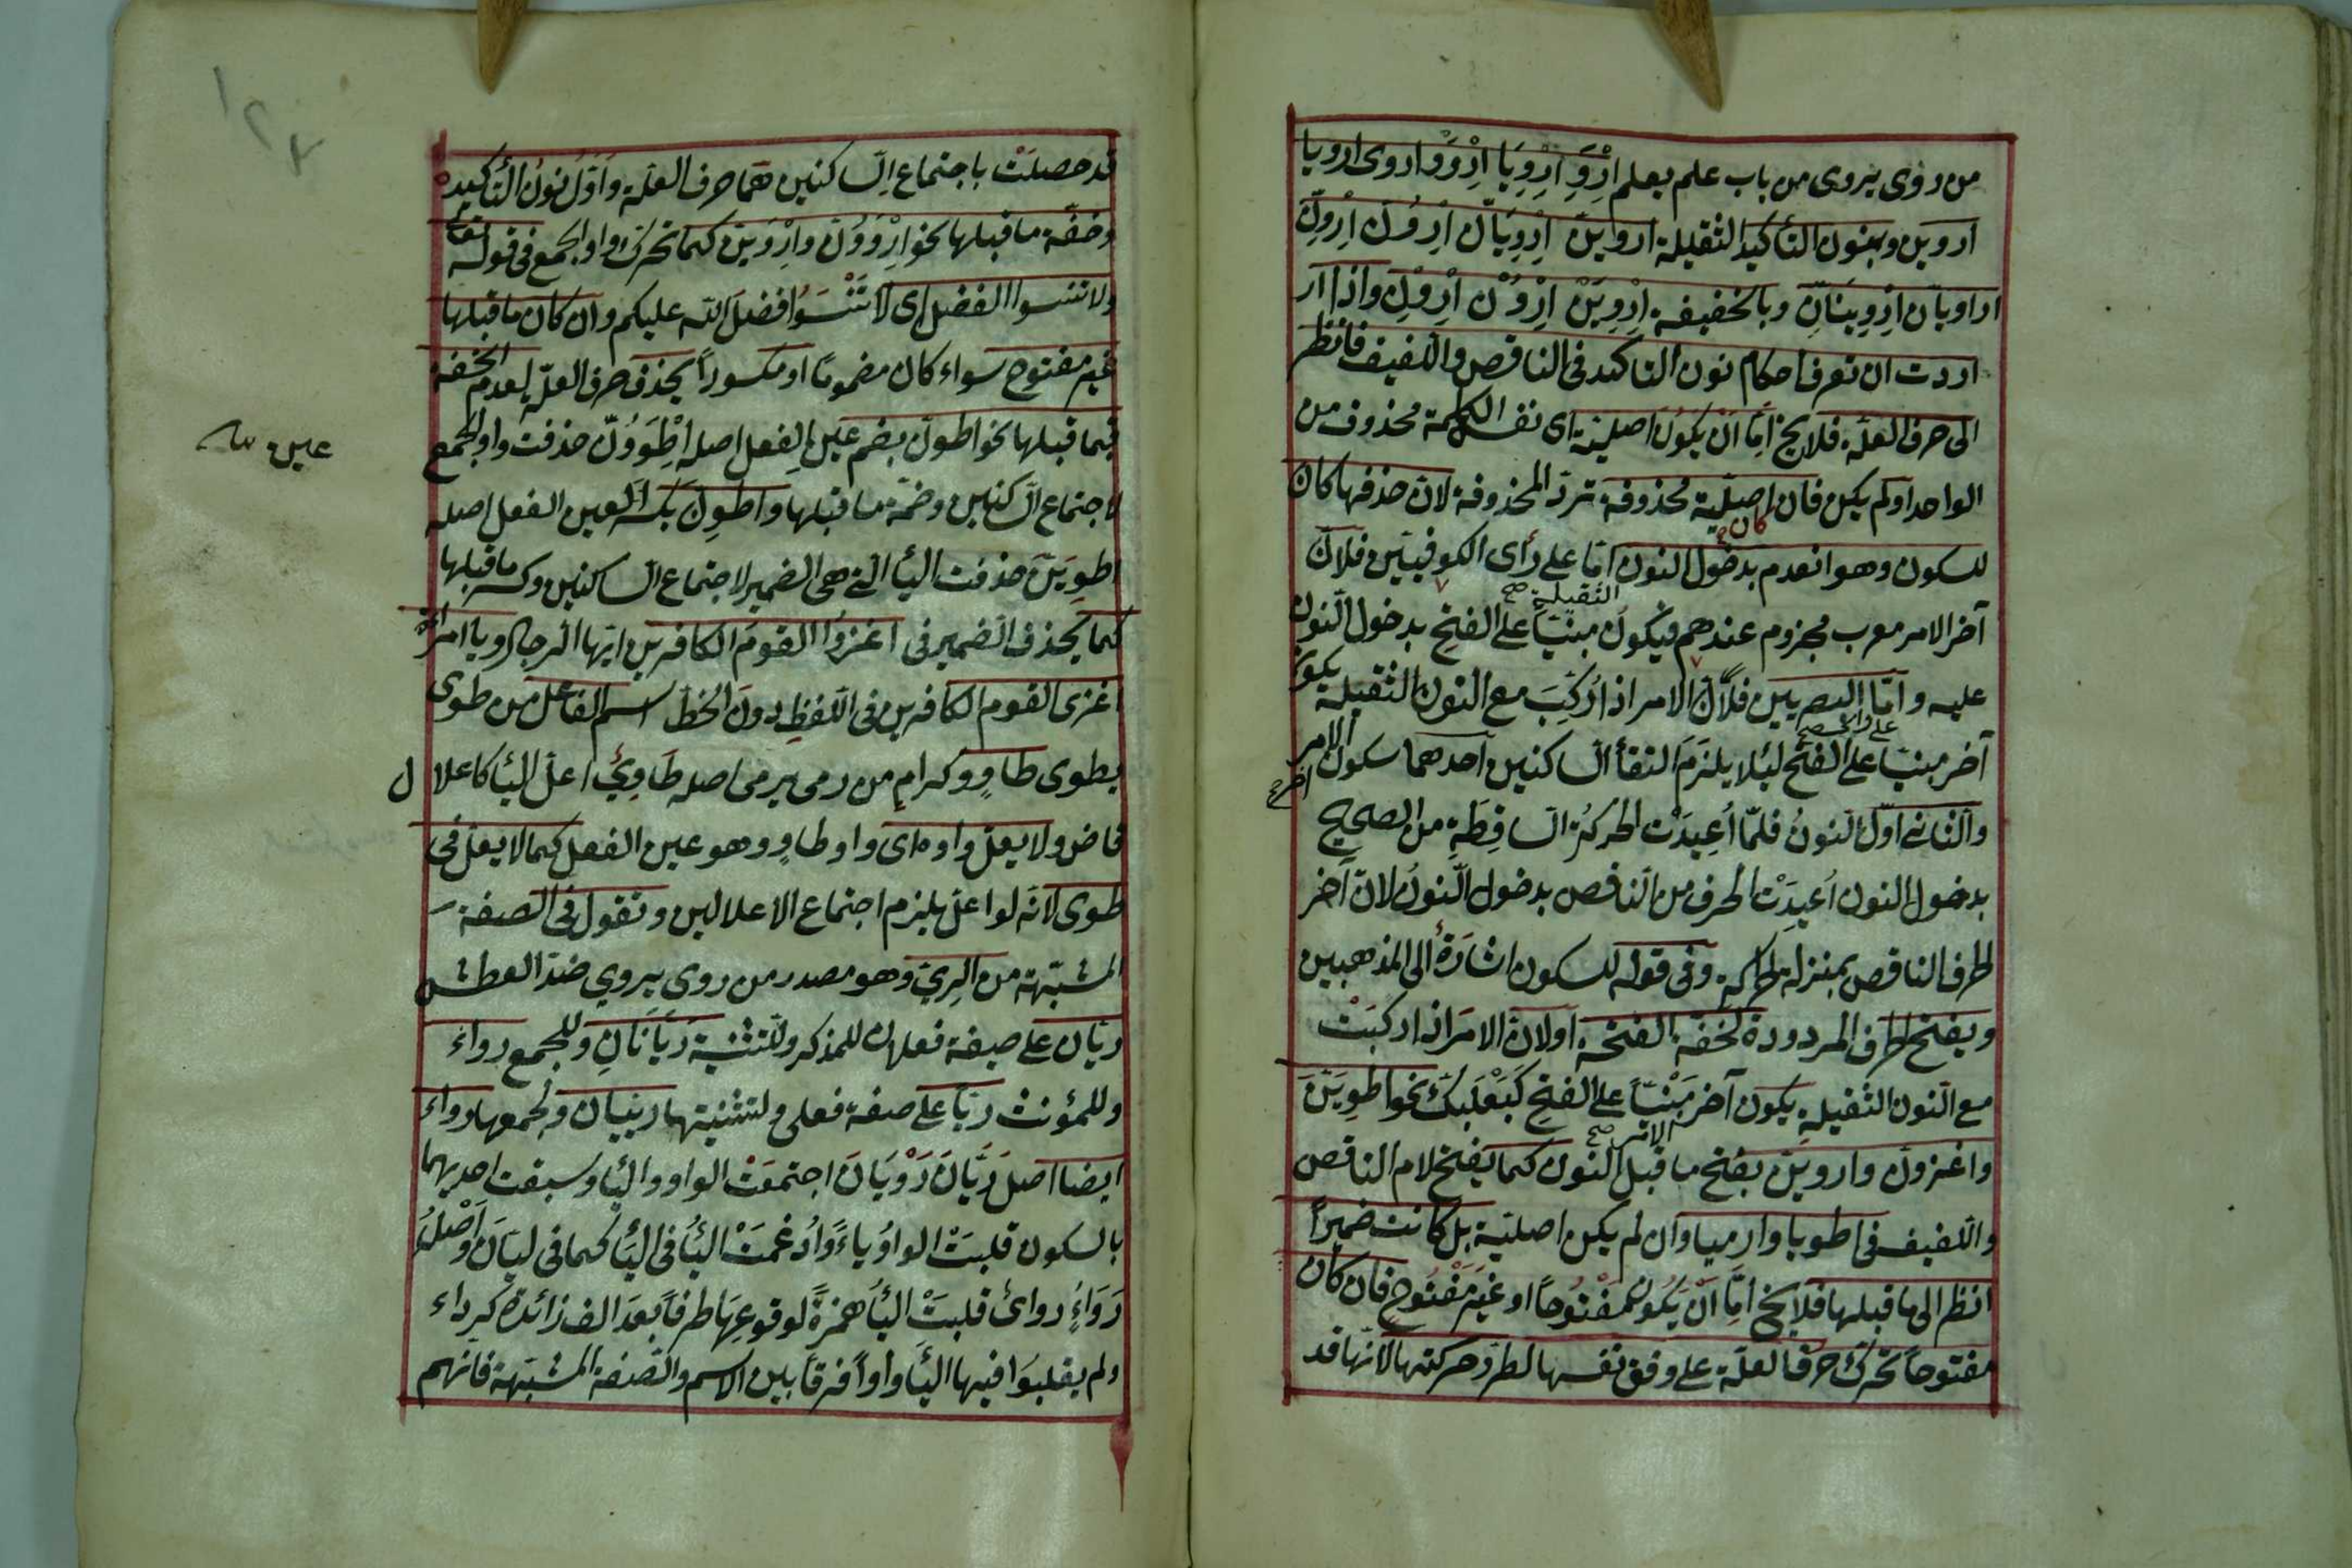 من روى يروى من باب علم يعلم اِرْوَِ اِرْوِيَا اِرْوَوْا اروى ارويا
اروين وبنون التأكيد الثقيلة اروايَنَّ اِرْوِيَانِّ اِرْوُنَّ اِرْوِنَّ
اراويانّ اِرْوِينَانِّ وبالخفيفة اِرْوِيَنْ اِرْوُنْ اِرْوِنْ واذا ار
اردت ان تعرف احكام نون التاكيد فى الناقص واللفيف فانظر
الى حرف العلّة فلا يخ امّا انْ يكونَ اصليّة اى نفس الكلمة محذوف من
الواحد او لم يكن فان اصليّة محذوفة تردّ المحذوفة لانّ حذفها كان
كان
للسكون وهو انعدم بدخول النون امّا على رأى الكوفييّن فلانّ
الثقيلة صح
آخر الامر معرب مجزوم عندهم فيكون مبنيّاً على الفتح بدخول النّون
عليه وامّا البصريين فلانّ الامر اذ اُرْكِبَ مع النون الثقيلة يكون
آخر مبنيّاً على الفتح لئلا يلزمَ التقأ الساكنين احدهما سكون الامر
والثانى اوّل النونُ فلمّا أُعِيدَتْ الحركةُ السّاقِطَةِ من الصحيح
بدخول النون اُعيدَتْ الحرف من الناقص بدخول النّونُ لانّ آخر
الحرف الناقص بمنزلة الحركة وفى قوله للسكون اشارةٌ الى المذهبين
ويفتح الحرف المردودة لخفّة الفتحة او لانّ الامرَ اذ اركبَتْ
مع النّون الثقيلةِ يكون آخر مَبْنيّاً على الفتحِ كَبَعْلَبَكَّ نحو اطوِيَنَّ
الامر صح
واغزونّ واروينّ بفتح ما قبل النّون كما يفتح لام الناقص
واللفيف فى اطويا وارميا وان لم يكن اصليّة بل كانت ضميراً
انظر الى ما قبلها فلا يخ امّا انْ يكونَ مَفْتُوحاً او غَيْرَ مَفْتُوحٍ فان كان
مفتوحاً تحرّك حرف العلّة على وفق نفسها لطرد حركتها لانّها قد
قد حصلَتْ باجتماع السّاكنين هما حرف العلّة واَوّلُ نونُ التّاكيد
وخفّة ما قبلها نحو اِرْوَوُنَّ واِرْوَيِنَّ كما تحرّك واو الجمع فى قوله تعا
ولا تنسوا الفضل اى لا تَنْسَوُا فضلَ اللّه عليكم وان كان ما قبلها
غير مفتوح سواء كان مضموماً او مكسوراً يحذف حرف العلّة لعدم الخفة
فيما قبلها نحو اطونّ بضم عين الفعل اصله اِطْوَوُنَّ حذفت واو الجمع
لاجتماع السّاكنين وضمّة ما قبلها واطوِنّ بكسر العين الفعل اصله
اطوِيَنَّ حذفت اليأ التى هى الضمير لاجتماع السّاكنين وكسر ما قبلها
كما يحذف الضمير فى اغزوُا القومَ الكافرين ايّها الرجال ويا امرأة
اغزى القوم الكافرين فى اللّفظِ دونَ الخطّ اسم الفاعل من طوى
يطوى طاوٍ وكرامٍ من رمى يرمى اصله طَاوِىٌ اعلّ اليأ كاعلال
قاض ولا يعلّ واوه اى واو طاوٍ وهو عين الفعل كما لا يعلّ فى
طوى لانّه لو اعلّ يلزم اجتماع الاعلالين وتقول فى الصفة
المشبّهة من الرِىّ وهو مصدر من روى يروي ضدّ العطش
ريّان على صيغة فعلان للمذكر وللتثنية رَيّانَانِ وللجمع رواءٌ
وللمؤنث ريّا على صفة فعلى ولتثنيتها رييان ولجمعها رواء
ايضا اصل رَيَّانَ رَوْيَانَ اجتمعَتْ الواو واليأ وسبقت احديهما
بالسكون قلبَتْ الواوُ ياءً واُدغمَتْ اليأُ فى اليَأ كما فى ليّانَ واَصْلُهُ
رَوَاءٌ رواىٌ قلبَتْ اليأُ همزةً لوقوعِهَا طرفاً بعدَ الف زائدة كرداء
ولم يقلبوَا فيها اليأَ واواً فرقاً بين الاسم والصّفة المشبّهة فانّهم